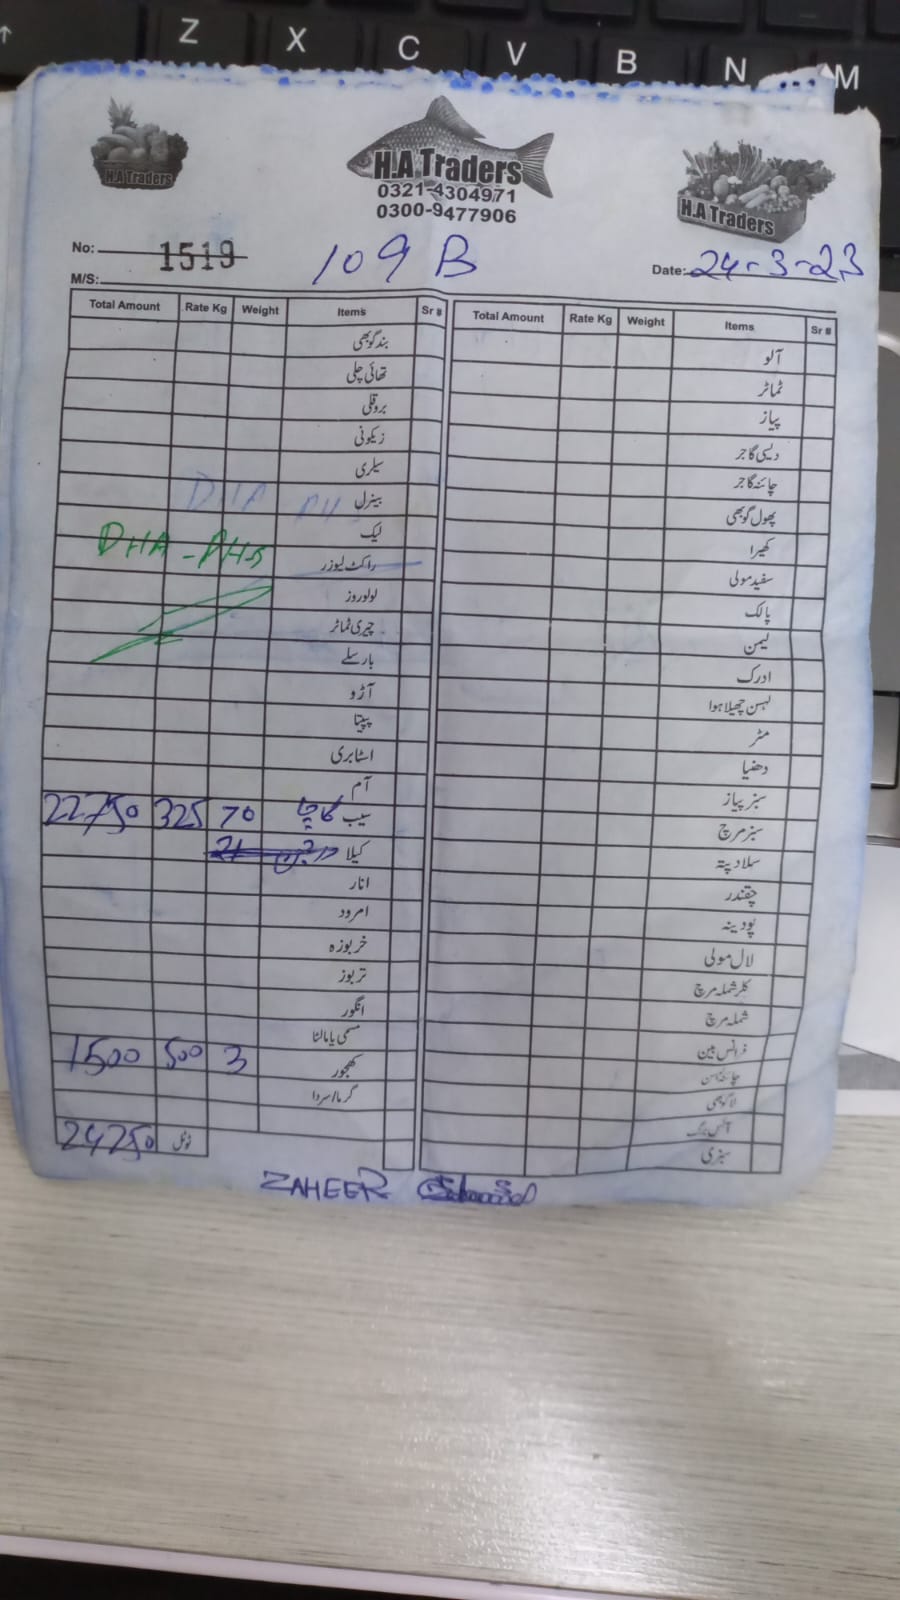 Z X C V B N M
H.A Traders
H.A Traders
0321-4304971
0300-9477906
H.A Traders
No: 1519
109 B
Date: 24-3-23
M/S:
Total Amount Rate Kg Weight Items Sr #
بند گوبھی
تھائی چلی
بروقلی
زیکونی
سیلری
بینزل
لیک
DHA
DHA - PH5
راکٹ لیوزر
لولوروز
چیری ٹماٹر
پارسلے
آڑو
پپیتا
اسٹابری
آم
سیب 70 325 22750
کیلا
انار
امرود
خربوزہ
تربوز
انگور
مسمی یا مالٹا
کھجور 3 500 1500
گرما/سردا
ٹوٹل 24250
Total Amount Rate Kg Weight Items Sr #
آلو
ٹماٹر
پیاز
دیسی گاجر
چائنہ گاجر
پھول گوبھی
کھیرا
سفید مولی
پالک
لیمن
ادرک
لہسن چھیلا ہوا
مٹر
دھنیا
سبز پیاز
سبز مرچ
سلاد پتہ
چقندر
پودینہ
لال مولی
کلر شملہ مرچ
شملہ مرچ
فرانس بین
آئس برگ
سبزی
ZAHEER